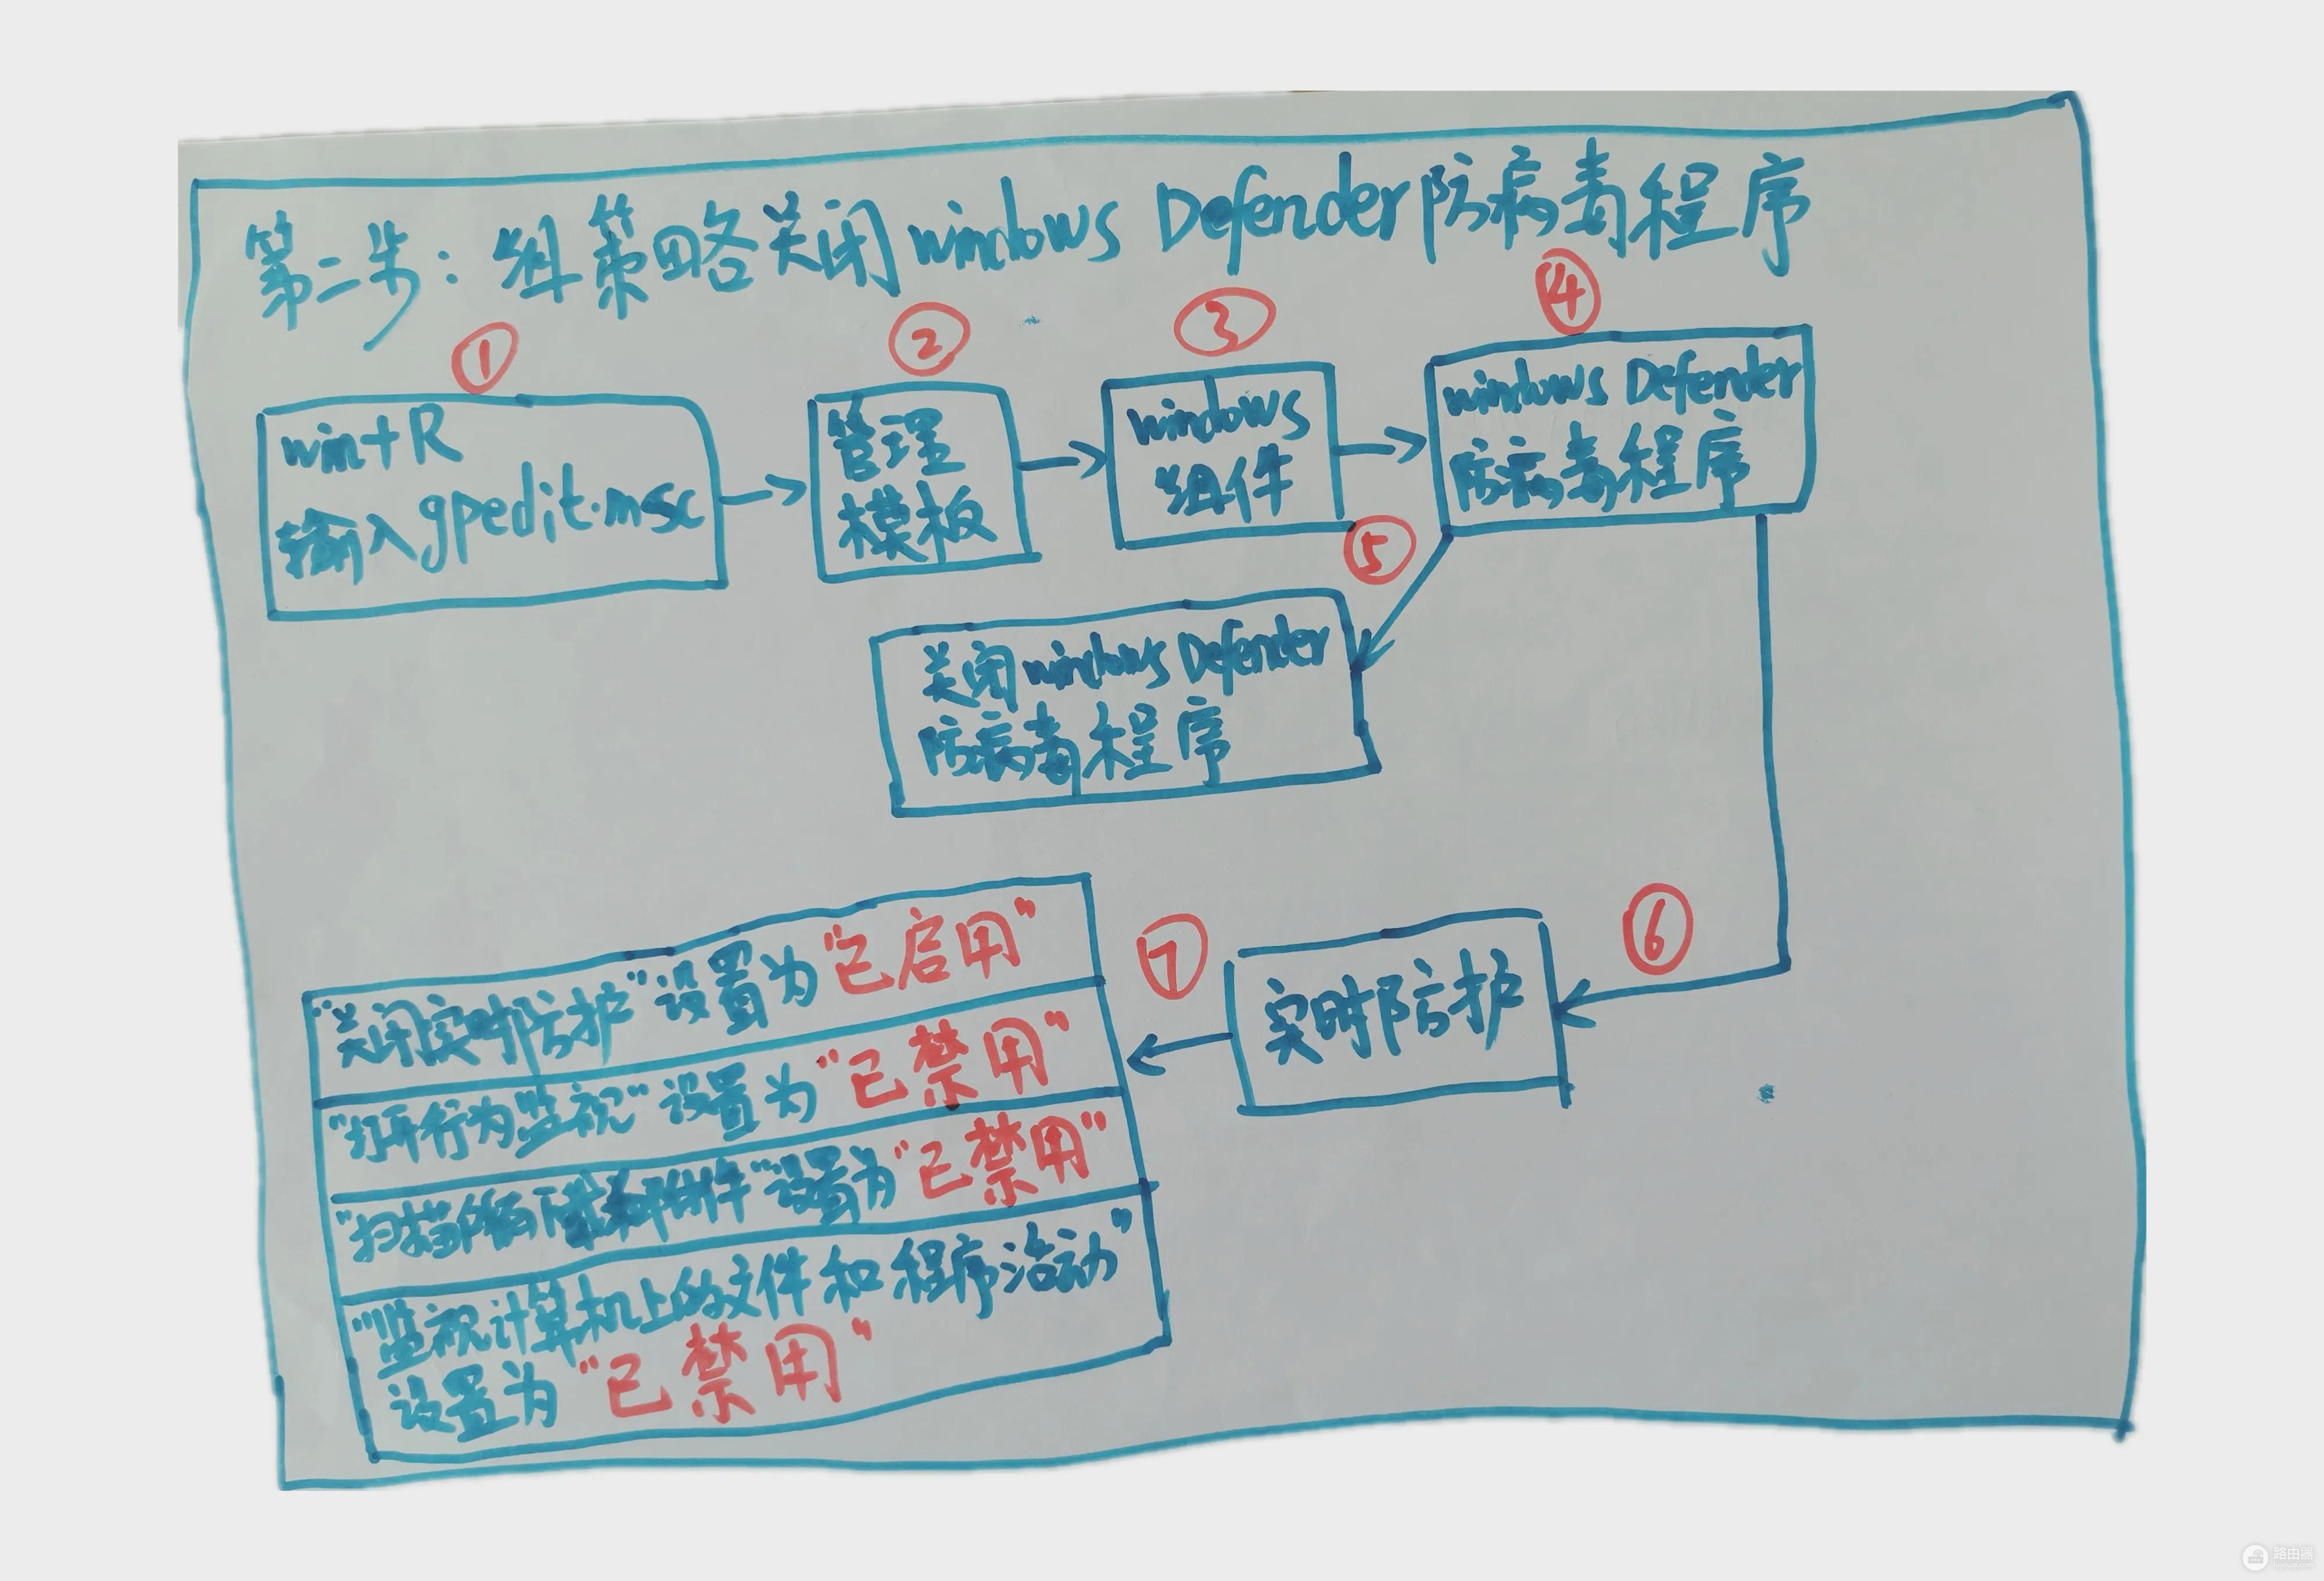 第二步：组策略关闭windows Defender防病毒程序
①
win+R
输入gpedit.msc
②
管理
模板
③
windows
组件
④
windows Defender
防病毒程序
⑤
关闭windows Defender
防病毒程序
⑥
实时防护
⑦
"关闭实时防护"设置为"已启用"
"打开行为监视"设置为"已禁用"
"扫描所有下载和附件"设置为"已禁用"
"监视计算机上的文件和程序活动"
设置为"已禁用"
路由器